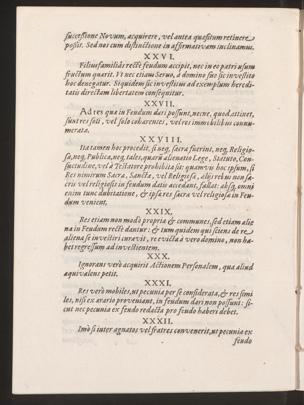 cuccessione Novum, acquirere, vel antea quæsitum retinere
possit. Sed nos cum distinctione in affirmativam inclinamus.
XXVI.
Filius familiâs rectè feudum accipit, nec in eo patri usum
fructum quærit. Ut nec etiam Servo, à domino suo sic investito
hoc denegatur. Siquidem sic investitus ad exemplum heredi-
tatis directam libertatem consequitur.
XXVII.
Ad res quæ in Feudum dari possunt, necne, quod attinet,
sunt res soli, vel solo cohærentes, vel res immobilibus connu-
merata.
XXVIII.
Ita tamen hoc procedit, si neq; sacra fuerint, neq; Religio-
sa, neq; Publica, neq; tales, quarū alienatio Lege, Statuto, Con-
suetudine, vel à Testatore prohibita sit: quamvis hoc ipsum, si
Res nimirum Sacra, Sancta, vel Religiosa, aliis rebus non sa-
cris vel religiosis in feudum datis accedant, fallat: absq; omni
enim dubitatione, & ipsa res sacra vel religiosa in Feu-
dum venient.
XXIX.
Res etiam non modò propria & communes, sed etiam alie
na in Feudum rectè dantur: & tum quidem qui sciens de re
aliena se investiri curavit, re evicta à vero domino, non ha-
bet regressum ad investientem.
XXX.
Ignorans verò acquirit Actionem Personalem, qua aliud
æquivalens petit.
XXXI.
Res verò mobiles, ut pecunia per se considerata, & res simi
les, nisi ex ærario proveniant, in feudum dari non possunt: si-
cut nec pecunia ex fendo redacta pro feudo haberi debet.
XXXII.
Imò si inter agnatos vel fratres convenerit, ut pecunia ex
feudo